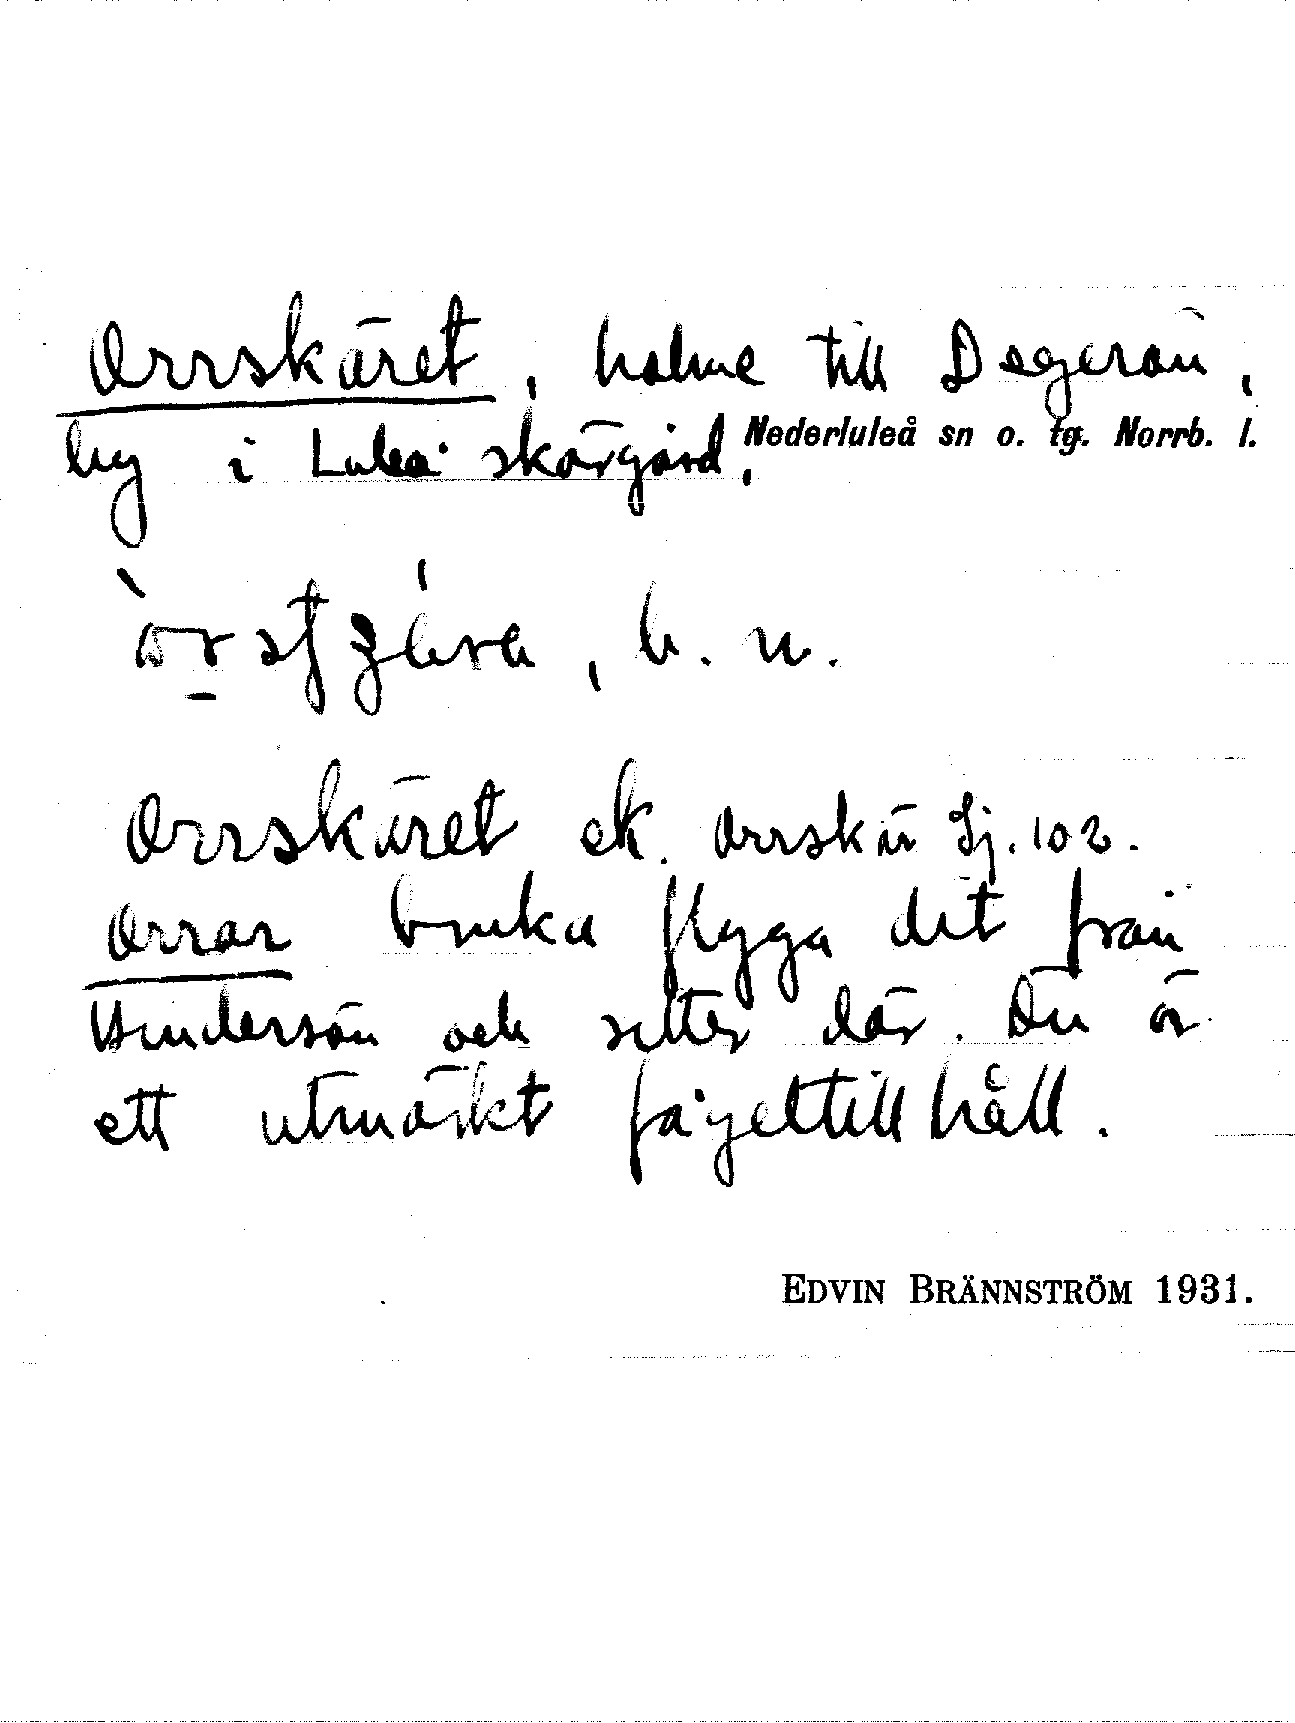 Orrskäret, holme till Degerön,
by i Luleå skärgård. Nederluleå sn o. tg. Norrb. l.
b. n.
Orrskäret ek. Orrskär Sj. 102.
Orrar bruka flygga dit från
Hindersön och sitter där. Du är
ett utmärkt fågeltillhåll.
EDVIN BRÄNNSTRÖM 1931.